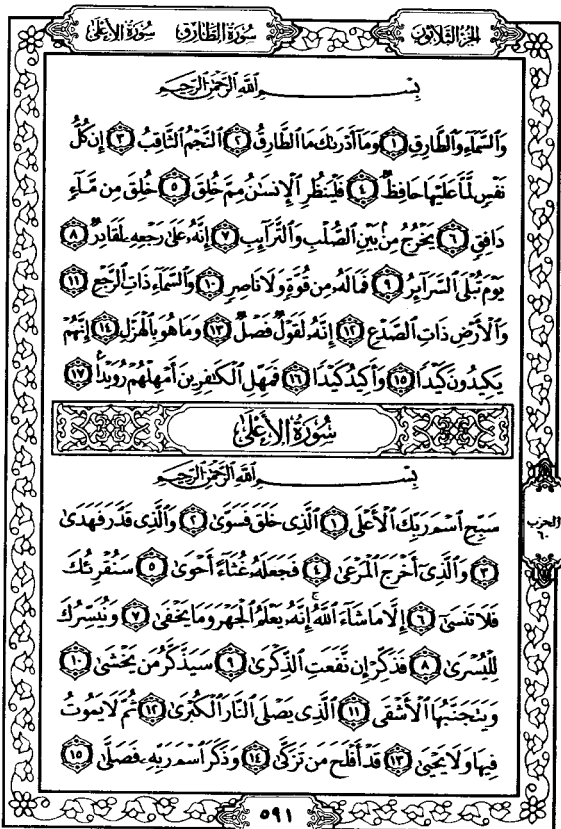 سُورَةُ الأَعْلَىٰ
سُورَةُ الطَّارِقِ
الجُزْءُ الثَّلَاثُونَ
بِسْمِ ٱللَّهِ ٱلرَّحْمَٰنِ ٱلرَّحِيمِ
وَٱلسَّمَآءِ وَٱلطَّارِقِ ١ وَمَآ أَدْرَىٰكَ مَا ٱلطَّارِقُ ٢ ٱلنَّجْمُ ٱلثَّاقِبُ ٣ إِن كُلُّ
نَفْسٍ لَّمَّا عَلَيْهَا حَافِظٌ ٤ فَلْيَنظُرِ ٱلْإِنسَٰنُ مِمَّ خُلِقَ ٥ خُلِقَ مِن مَّآءٍ
دَافِقٍ ٦ يَخْرُجُ مِنۢ بَيْنِ ٱلصُّلْبِ وَٱلتَّرَآئِبِ ٧ إِنَّهُۥ عَلَىٰ رَجْعِهِۦ لَقَادِرٌ ٨
يَوْمَ تُبْلَى ٱلسَّرَآئِرُ ٩ فَمَا لَهُۥ مِن قُوَّةٍ وَلَا نَاصِرٍ ١٠ وَٱلسَّمَآءِ ذَاتِ ٱلرَّجْعِ ١١
وَٱلْأَرْضِ ذَاتِ ٱلصَّدْعِ ١٢ إِنَّهُۥ لَقَوْلٌ فَصْلٌ ١٣ وَمَا هُوَ بِٱلْهَزْلِ ١٤ إِنَّهُمْ
يَكِيدُونَ كَيْدًا ١٥ وَأَكِيدُ كَيْدًا ١٦ فَمَهِّلِ ٱلْكَٰفِرِينَ أَمْهِلْهُمْ رُوَيْدًۢا ١٧
سُورَةُ الأَعْلَىٰ
بِسْمِ ٱللَّهِ ٱلرَّحْمَٰنِ ٱلرَّحِيمِ
سَبِّحِ ٱسْمَ رَبِّكَ ٱلْأَعْلَى ١ ٱلَّذِى خَلَقَ فَسَوَّىٰ ٢ وَٱلَّذِى قَدَّرَ فَهَدَىٰ
٣ وَٱلَّذِىٓ أَخْرَجَ ٱلْمَرْعَىٰ ٤ فَجَعَلَهُۥ غُثَآءً أَحْوَىٰ ٥ سَنُقْرِئُكَ
فَلَا تَنسَىٰٓ ٦ إِلَّا مَا شَآءَ ٱللَّهُ ۚ إِنَّهُۥ يَعْلَمُ ٱلْجَهْرَ وَمَا يَخْفَىٰ ٧ وَنُيَسِّرُكَ
لِلْيُسْرَىٰ ٨ فَذَكِّرْ إِن نَّفَعَتِ ٱلذِّكْرَىٰ ٩ سَيَذَّكَّرُ مَن يَخْشَىٰ ١٠
وَيَتَجَنَّبُهَا ٱلْأَشْقَى ١١ ٱلَّذِى يَصْلَى ٱلنَّارَ ٱلْكُبْرَىٰ ١٢ ثُمَّ لَا يَمُوتُ
فِيهَا وَلَا يَحْيَىٰ ١٣ قَدْ أَفْلَحَ مَن تَزَكَّىٰ ١٤ وَذَكَرَ ٱسْمَ رَبِّهِۦ فَصَلَّىٰ ١٥
الحزب
٦٠
٥٩١